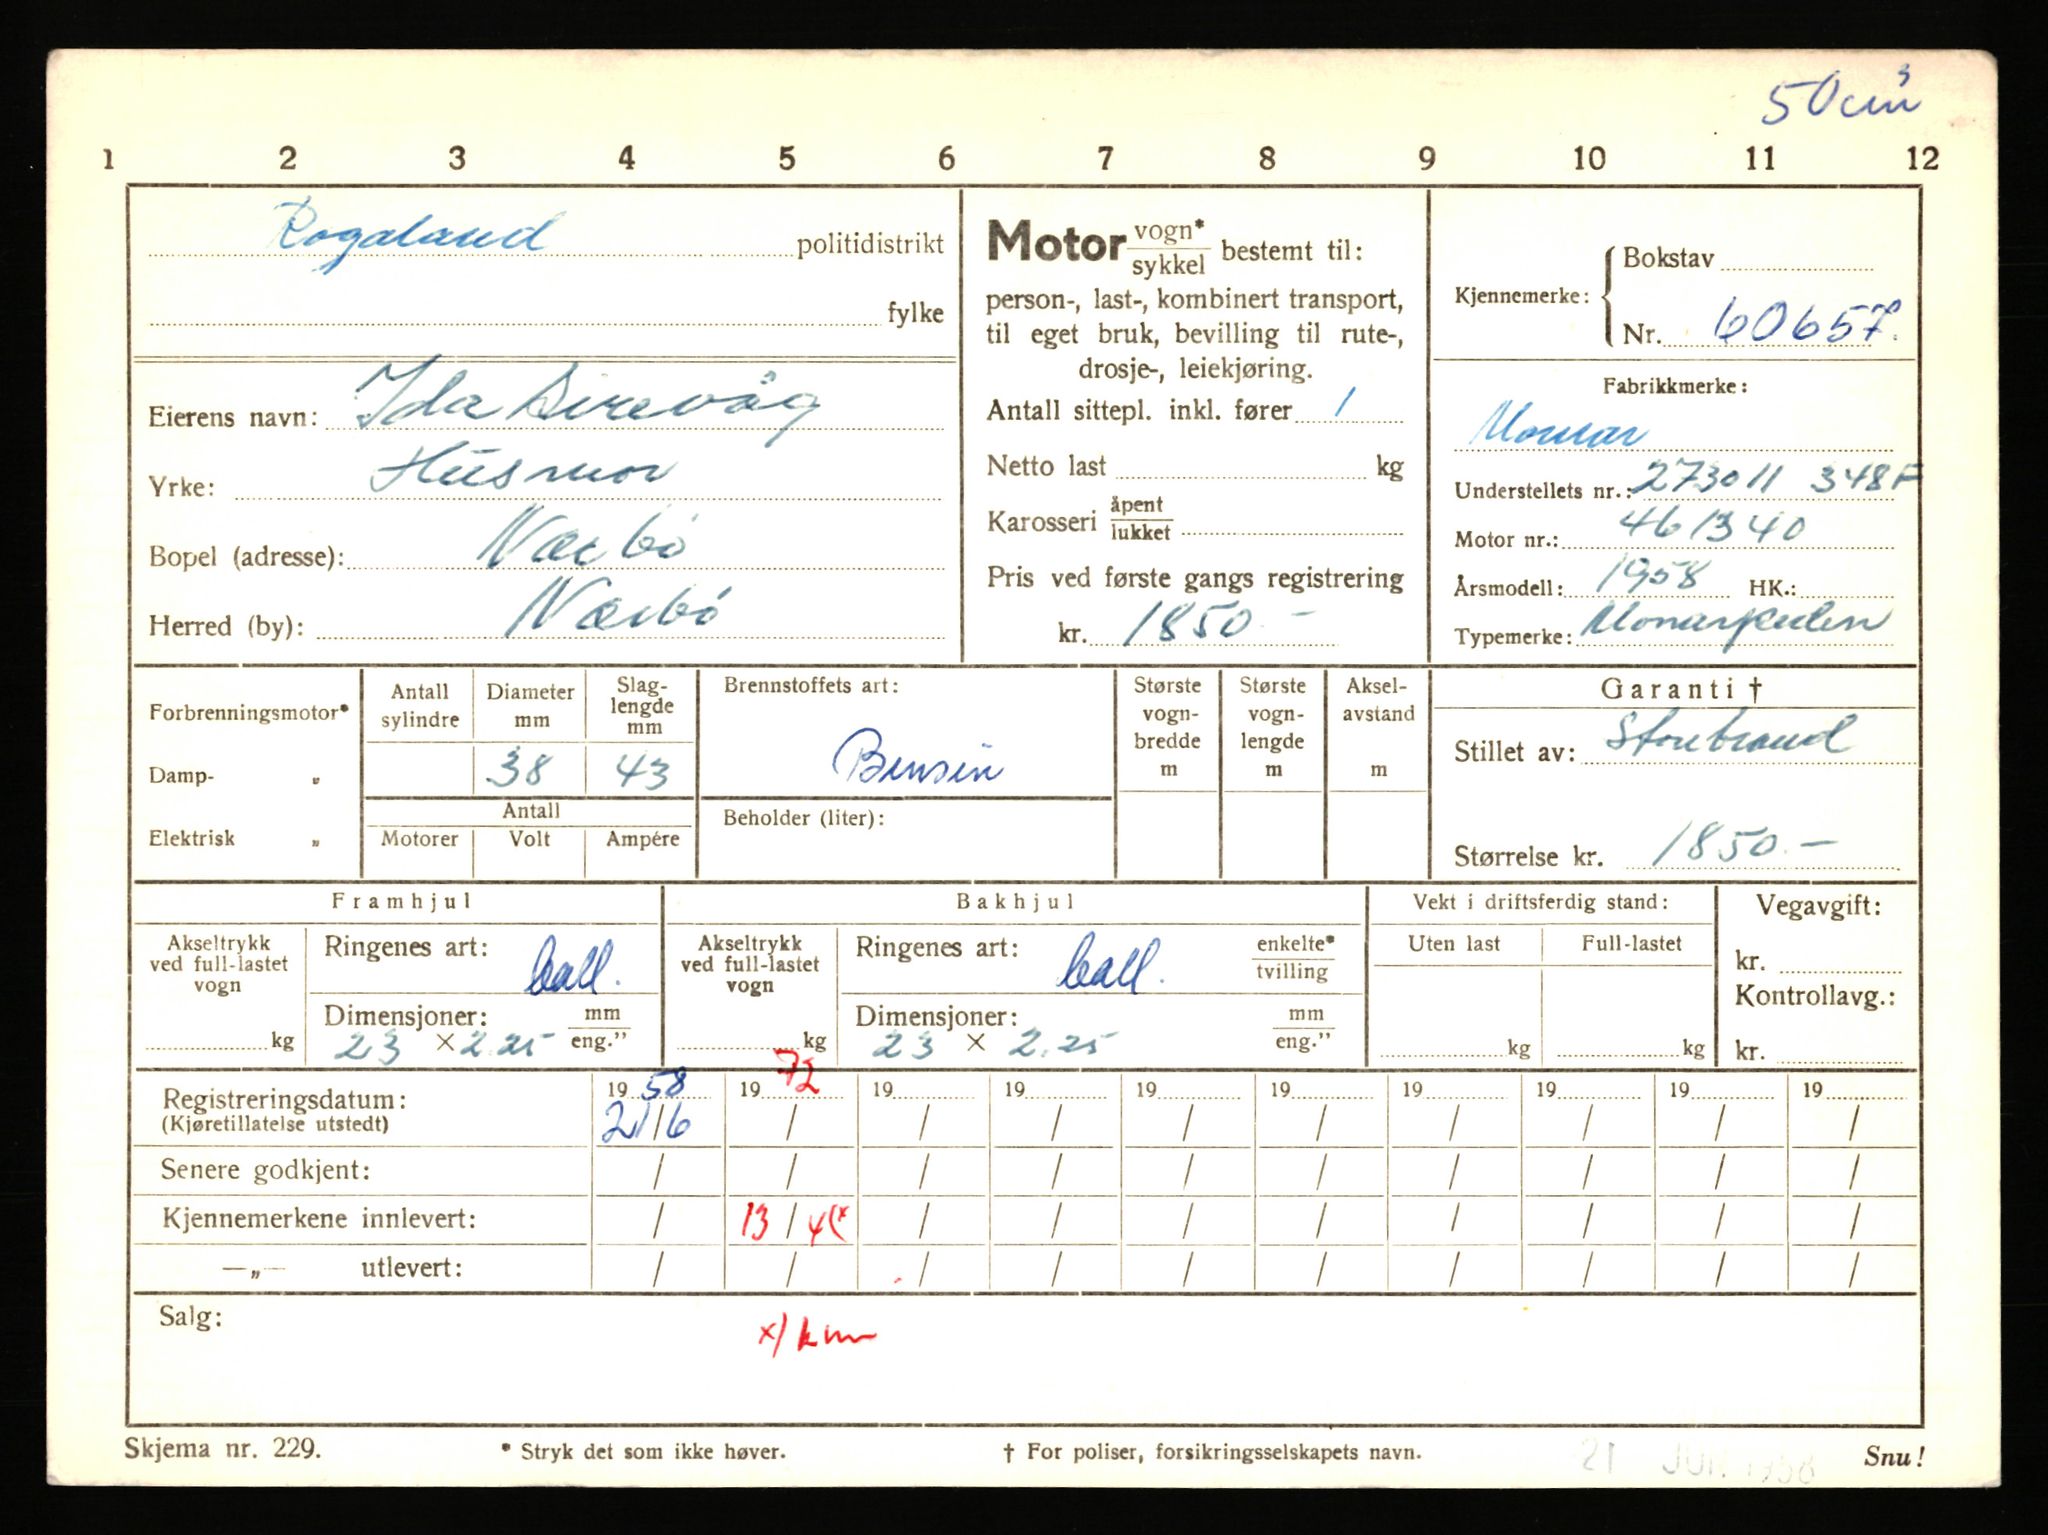 50 cm³
1 2 3 4 5 6 7 8 9 10 11 12
Rogaland politidistrikt
fylke
Eierens navn: Ida Sirevåg
Yrke: Husmor
Bopel (adresse): Nærbö
Herred (by): Nærbö
Motor vogn* / sykkel bestemt til:
person-, last-, kombinert transport,
til eget bruk, bevilling til rute-,
drosje-, leiekjøring.
Antall sittepl. inkl. fører 1
Netto last kg
Karosseri åpent / lukket
Pris ved første gangs registrering
kr. 1850.-
Kjennemerke: { Bokstav
Nr. 60657.
Fabrikkmerke:
Monar
Understellets nr.: 273011 348F
Motor nr.: 461340
Årsmodell: 1958 HK.:
Typemerke: Monarpeden
Forbrenningsmotor*
Damp- „
Elektrisk „
Antall sylindre
Diameter mm
38
Slag-lengde mm
43
Antall
Motorer Volt Ampére
Brennstoffets art:
Bensin
Beholder (liter):
Største vogn-bredde m
Største vogn-lengde m
Aksel-avstand m
Garanti †
Stillet av: Storebrand
Størrelse kr. 1850.-
Framhjul
Akseltrykk ved full-lastet vogn
kg
Ringenes art: ball.
Dimensjoner: mm / eng.”
23 × 2.25
Bakhjul
Akseltrykk ved full-lastet vogn
kg
Ringenes art: ball. enkelte* / tvilling
Dimensjoner: mm / eng.”
23 × 2.25
Vekt i driftsferdig stand:
Uten last Full-lastet
kg kg
Vegavgift:
kr.
Kontrollavg.:
kr.
Registreringsdatum: 19 58 19 72 19 19 19 19 19 19 19 19
(Kjøretillatelse utstedt) 21/6 / / / / / / / / /
Senere godkjent: / / / / / / / / / /
Kjennemerkene innlevert: / 13/4(* / / / / / / / /
—„— utlevert: / / / / / / / / / /
Salg:
Skjema nr. 229. * Stryk det som ikke høver. † For poliser, forsikringsselskapets navn. 21 JUN 1958 Snu!